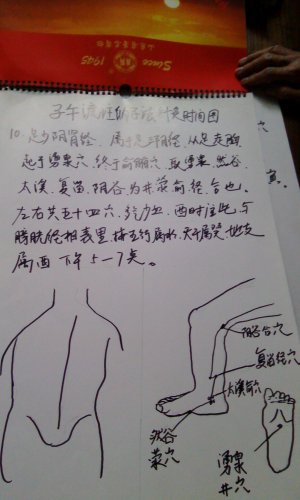 Since 1945
子午流注纳子法针灸时间图
10. 足少阴肾经、属于足三阴经、从足走胸
起于涌泉穴、终于俞腑穴、取涌泉、然谷、
太溪、复溜、阴谷为井荥俞经合也。
左右共五十四穴、 血、酉时注此、与
膀胱经相表里、按五行属水、天干属癸、地支
属酉 下午5—7点。
阴谷合穴
复溜经穴
太溪俞穴
然谷
荥穴
涌泉
井穴